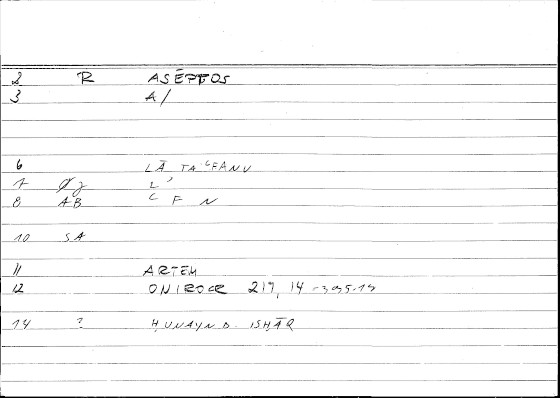 2 R ASÉPTOS
3 A/
6 LĀ TA'CFANU
7 Øj L'
8 AB C F N
10 SA
11 ARTEM
12 ONIROCR 217, 14
14 ? ḤUNAYN B. ISḤĀQ